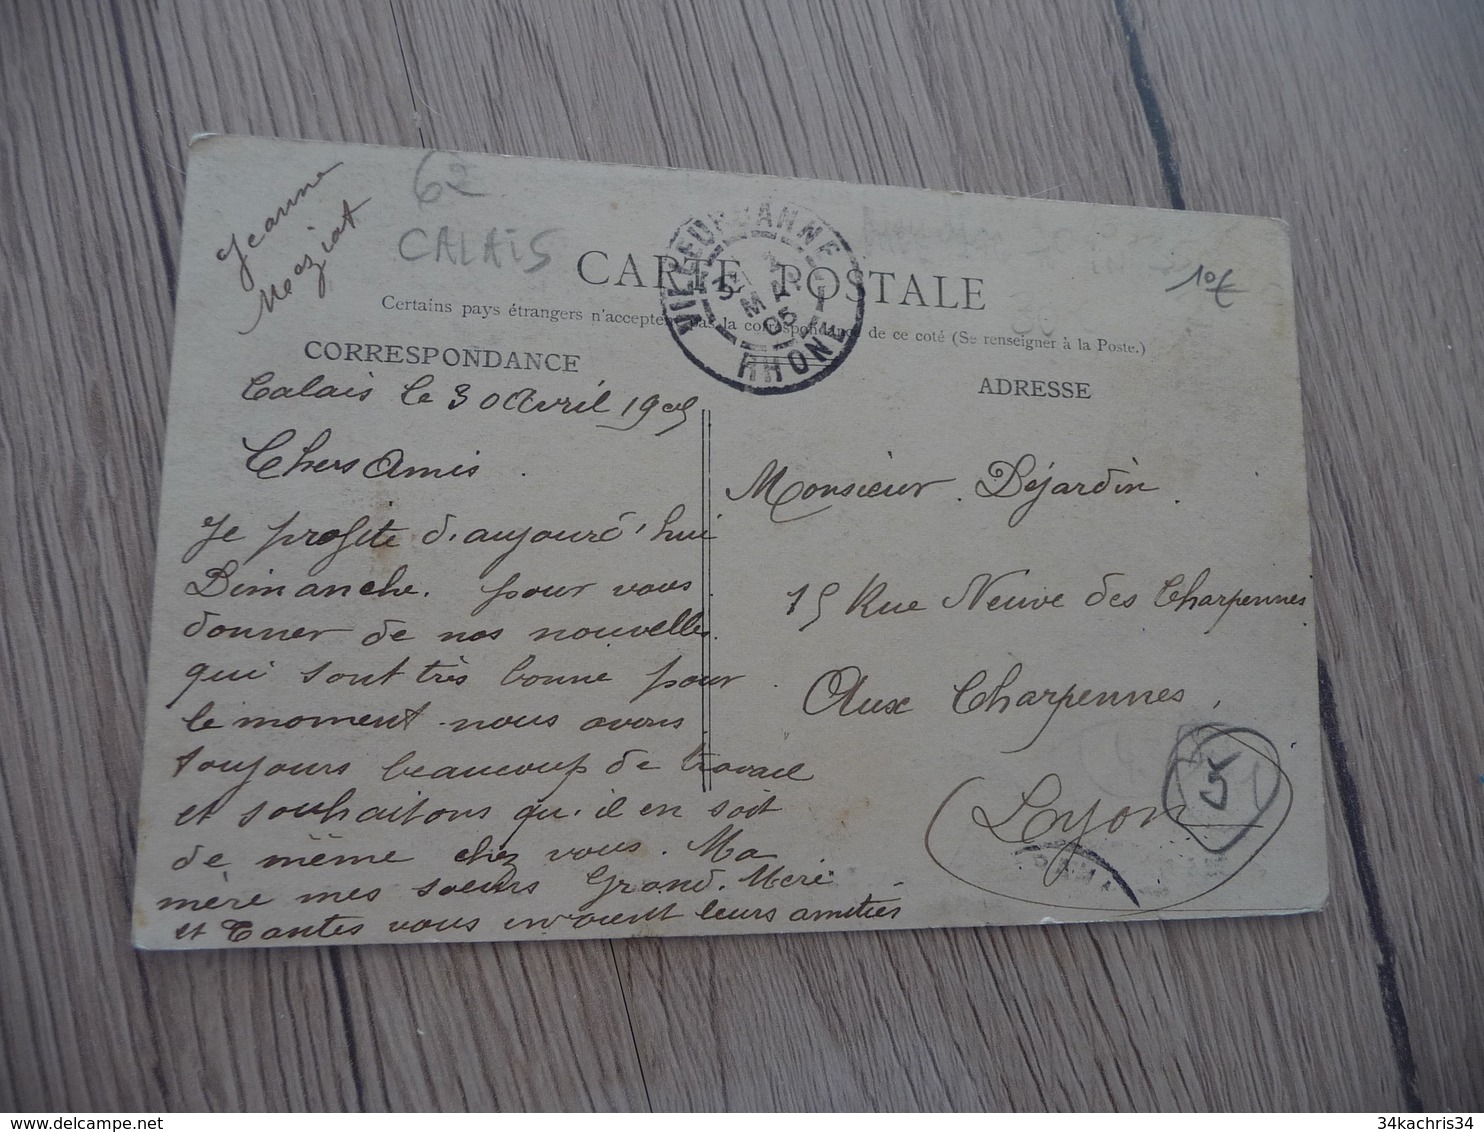 Jeanne
Meziat
62
CALAIS
VILLEURBANNE
MAI
05
RHONE
CARTE POSTALE
Certains pays étrangers n'acceptent pas la correspondance de ce coté (Se renseigner à la Poste.)
10€
CORRESPONDANCE
Calais le 30 Avril 1905
Chers Amis
Je profite d'aujouré'hui
Dimanche. pour vous
donner de nos nouvelles
qui sont très bonne pour
le moment nous avons
toujours beaucoup de travail
et souhaitons qu'il en soit
de même chez vous. Ma
mère mes soeurs Grand. Mère
et Tantes vous envoient leurs amitiés
ADRESSE
Monsieur Déjardin
15 Rue Neuve des Charpennes
Aux Charpennes,
Lyon
5
delcampe.net
34kachris34